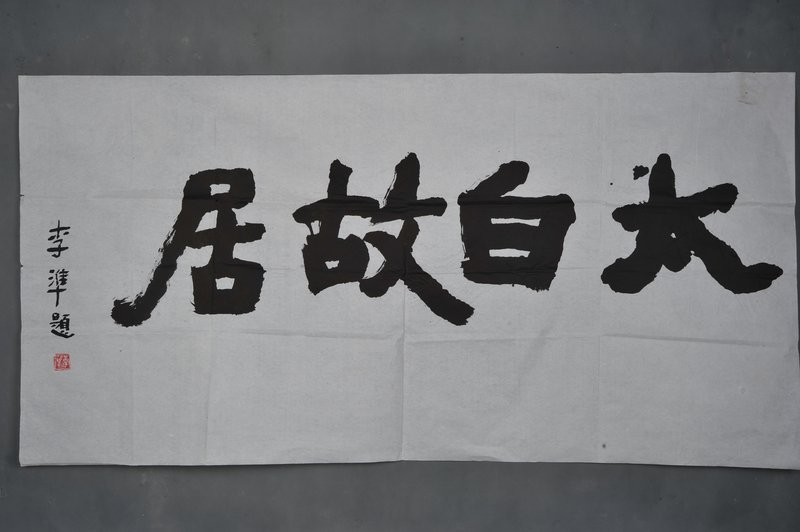 太白故居
李準題